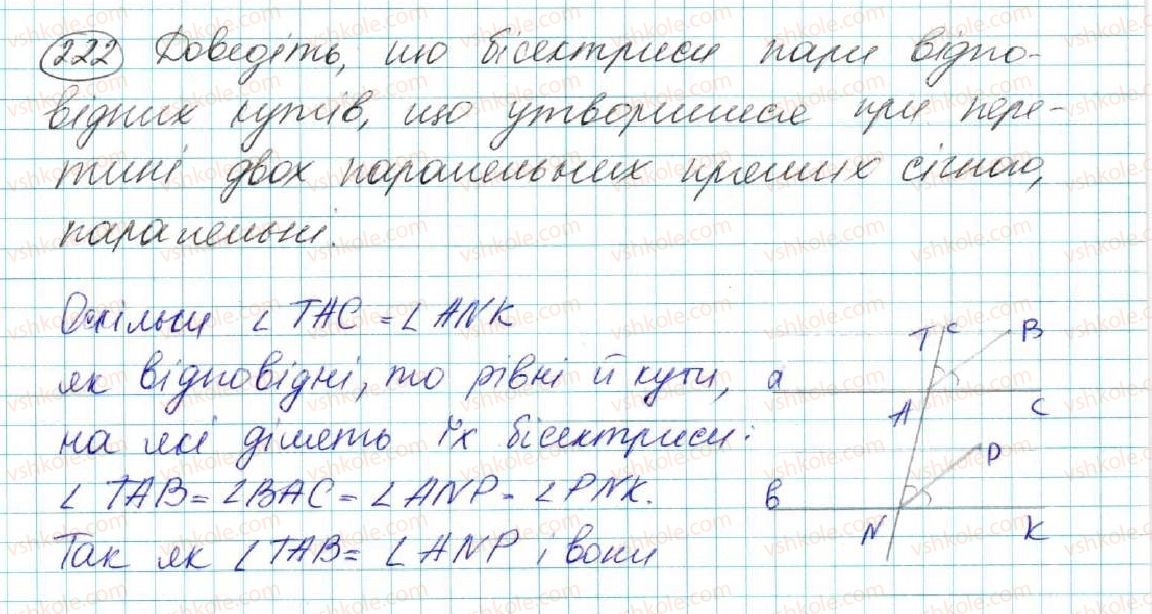 222 Доведіть, що бісектриси пари відпо-
відних кутів, що утворилися при пере-
тині двох паралельних прямих січною,
паралельні.
Оскільки ∠ TAC = ∠ ANK
як відповідні, то рівні й кути,
на які ділять їх бісектриси:
∠ TAB = ∠BAC = ∠ ANP = ∠ PNK.
Так як ∠TAB = ∠ ANP і вони
T c B
a
A C
P
в
N K
vshkole.com